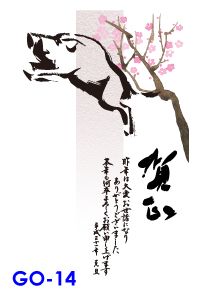 賀正
昨年は大変お世話になり
ありがとうございました
本年も何卒よろしくお願い申し上げます
平成三十一年 元旦
GO-14